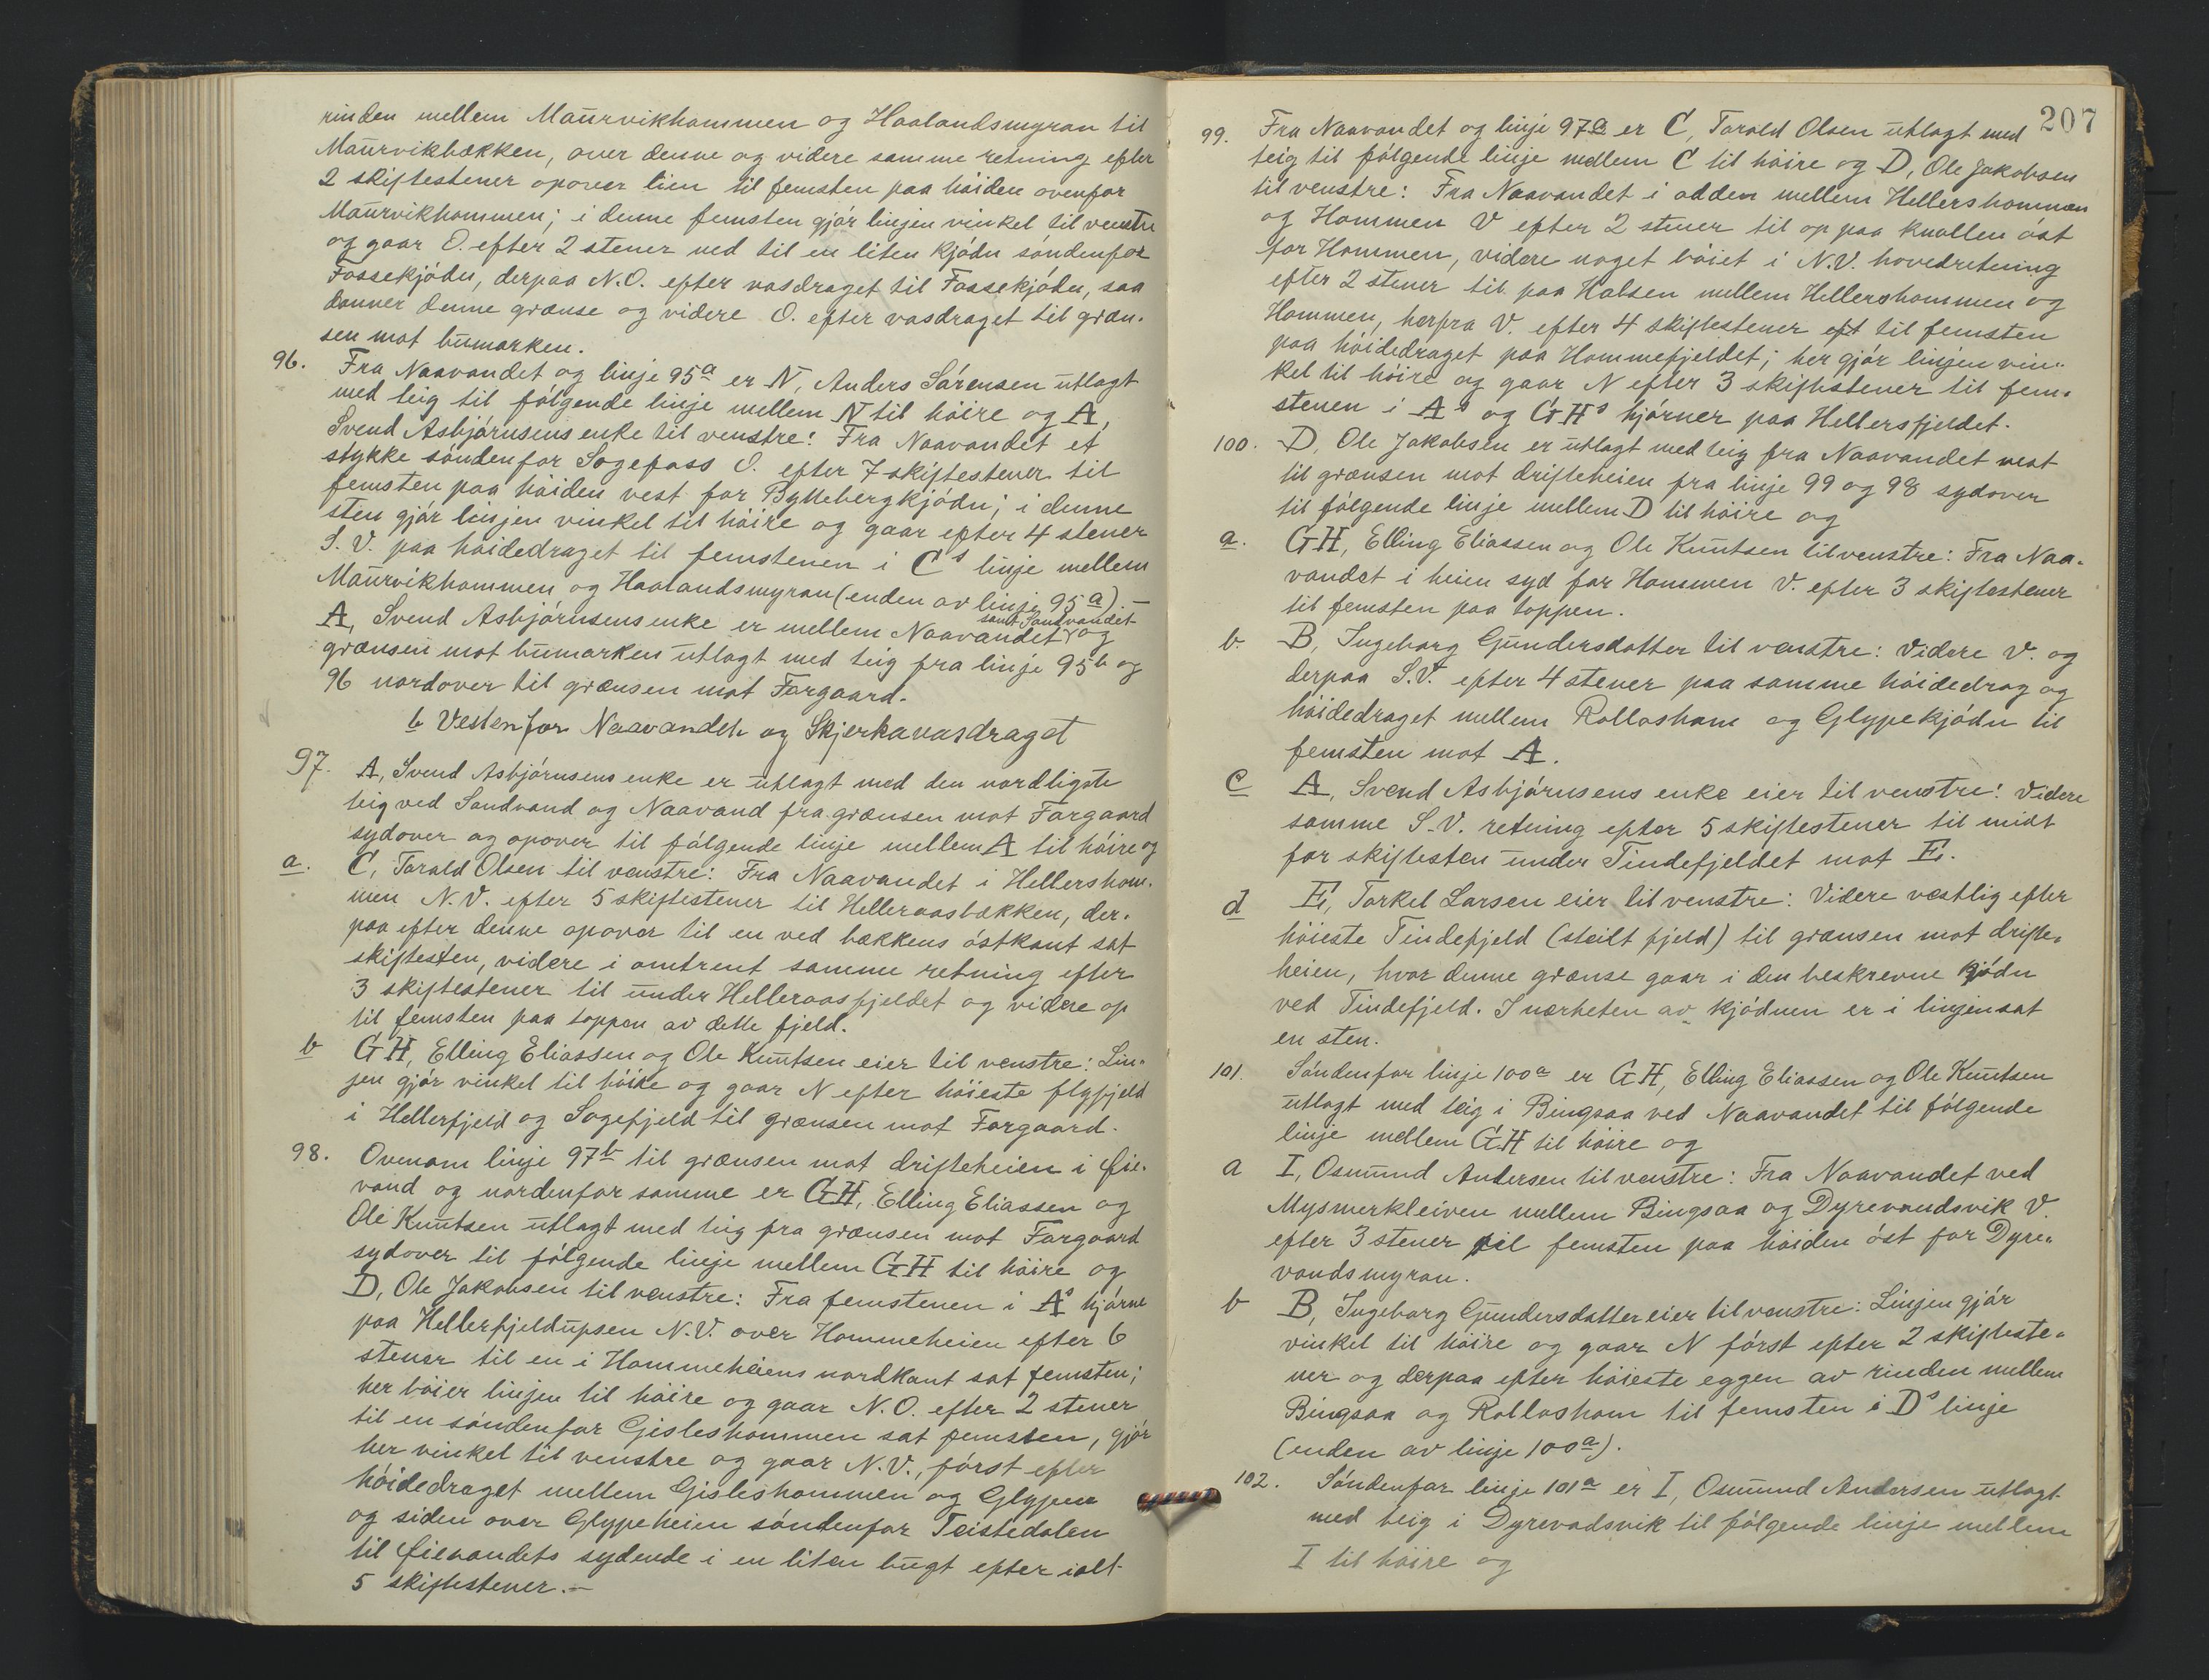 rinden mellem Maurvikhommen og Haalandsmyran til
Maurvikbækken, over denne og videre samme retning efter
2 skiftestener opover lien til femsten paa høiden ovenfor
Maurvikhommen; i denne femsten gjør linjen vinkel til venstre
og gaar O. efter 2 stener ned til en liten kjødn søndenfor
Fossekjødn, derpaa N.O. efter vasdraget til Fossekjødn, saa
danner denne grænse og videre O. efter vasdraget til græn-
sen mot bumarken.
96. Fra Naavandet og linje 95a er N, Anders Sørensen utlagt
med teig til følgende linje mellem N til høire og A,
Svend Asbjørnsens enke til venstre: Fra Naavandet et
stykke søndenfor Sogefoss O. efter 7 skiftestener til
femsten paa høiden vest for Byttebergkjødn; i denne
sten gjør linjen vinkel til høire og gaar efter 4 stener
S.V. paa høidedraget til femstenen i Cs linje mellem
Maurvikhommen og Haalandsmyran (enden av linje 95a). —
A, Svend Asbjørnsens enke er mellem Naavandet samt Sandvandet og
grænsen mot bumarken utlagt med teig fra linje 95b og
96 nordover til grænsen mot Fargaard.
b Vestenfor Naavandet og Skjerkavasdraget
97. A, Svend Asbjørnsens enke er utlagt med den nordligste
teig ved Sandvand og Naavand fra grænsen mot Fargaard
sydover og opover til følgende linje mellem A til høire og
a. C, Torald Olsen til venstre: Fra Naavandet i Hellershom-
men N.V. efter 5 skiftestener til Helleraasbækken, der-
paa efter denne opover til en ved bækkens østkant sat
skiftesten, videre i omtrent samme retning efter
3 skiftestener til under Helleraasfjeldet og videre op
til femsten paa toppen av dette fjeld.
b GH, Elling Eliassen og Ole Knutsen eier til venstre: Lin-
jen gjør vinkel til høire og gaar N efter høieste flyfjeld
i Hellerfjeld og Sogefjeld til grænsen mot Fargaard.
98. Ovenom linje 97b til grænsen mot drifteheien i Øie-
vand og nordenfor samme er GH, Elling Eliassen og
Ole Knutsen utlagt med teig fra grænsen mot Fargaard
sydover til følgende linje mellem GH til høire og
D, Ole Jakobsen til venstre: Fra femstenen i As hjørne
paa Hellerfjeldupsen N.V. over Hommeheien efter 6
stener til en i Hommeheiens nordkant sat femsten;
her bøier linjen til høire og gaar N.O. efter 2 stener
til en søndenfor Gisleshommen sat femsten, gjør
her vinkel til venstre og gaar N.V., først efter
høidedraget mellem Gisleshommen og Glypen
og siden over Glypeheien søndenfor Teistedalen
til Øievandets sydende i en liten bugt efter ialt
5 skiftestener. —
207
99. Fra Naavandet og linje 97a er C, Torald Olsen utlagt med
teig til følgende linje mellem C til høire og D, Ole Jakobsen
til venstre: Fra Naavandet i odden mellem Hellershommen
og Hommen V efter 2 stener til op paa knollen øst
for Hommen, videre noget bøiet i N.V. hovedretning
efter 2 stener til paa Halsen mellem Hellershommen og
Hommen, herfra V. efter 4 skiftestener eft til femsten
paa høidedraget paa Hommefjeldet; her gjør linjen vin-
kel til høire og gaar N efter 3 skiftestener til fem-
stenen i As og GHs hjørner paa Hellersfjeldet.
100. D, Ole Jakobsen er utlagt med teig fra Naavandet vest
til grænsen mot drifteheien fra linje 99 og 98 sydover
til følgende linje mellem D til høire og
a. GH, Elling Eliassen og Ole Knutsen til venstre: Fra Naa-
vandet i heien syd for Hommen V. efter 3 skiftestener
til femsten paa toppen.
b. B, Ingeborg Gundersdatter til venstre: Videre V. og
derpaa S.V. efter 4 stener paa samme høidedrag og
høidedraget mellem Rollosham og Glypekjødn til
femsten mot A.
c A, Svend Asbjørnsens enke eier til venstre: Videre
samme S.V. retning efter 5 skiftestener til midt
for skiftesten under Tindefjeldet mot E.
d E, Torkel Larsen eier til venstre: Videre vestlig efter
høieste Tindefjeld (steilt fjeld) til grænsen mot drifte-
heien, hvor denne grænse gaar i den beskrevne kjødn
ved Tindefjeld. I nærheten av kjødnen er i linjen sat
en sten.
101. Søndenfor linje 100a er GH, Elling Eliassen og Ole Knutsen
utlagt med teig i Bingsaa ved Naavandet til følgende
linje mellem GH til høire og
a I, Osmund Andersen til venstre: Fra Naavandet ved
Mysmerkleiven mellem Bingsaa og Dyrevandsvik V.
efter 3 stener til femsten paa høiden øst for Dyre-
vandsmyran.
b B, Ingeborg Gundersdatter eier til venstre: Linjen gjør
vinkel til høire og gaar N først efter 2 skifteste-
ner og derpaa efter høieste eggen av rinden mellem
Bingsaa og Rollosham til femsten i Ds linje
(enden av linje 100a).
102. Søndenfor linje 101a er I, Osmund Andersen utlagt
med teig i Dyrevadsvik til følgende linje mellem
I til høire og